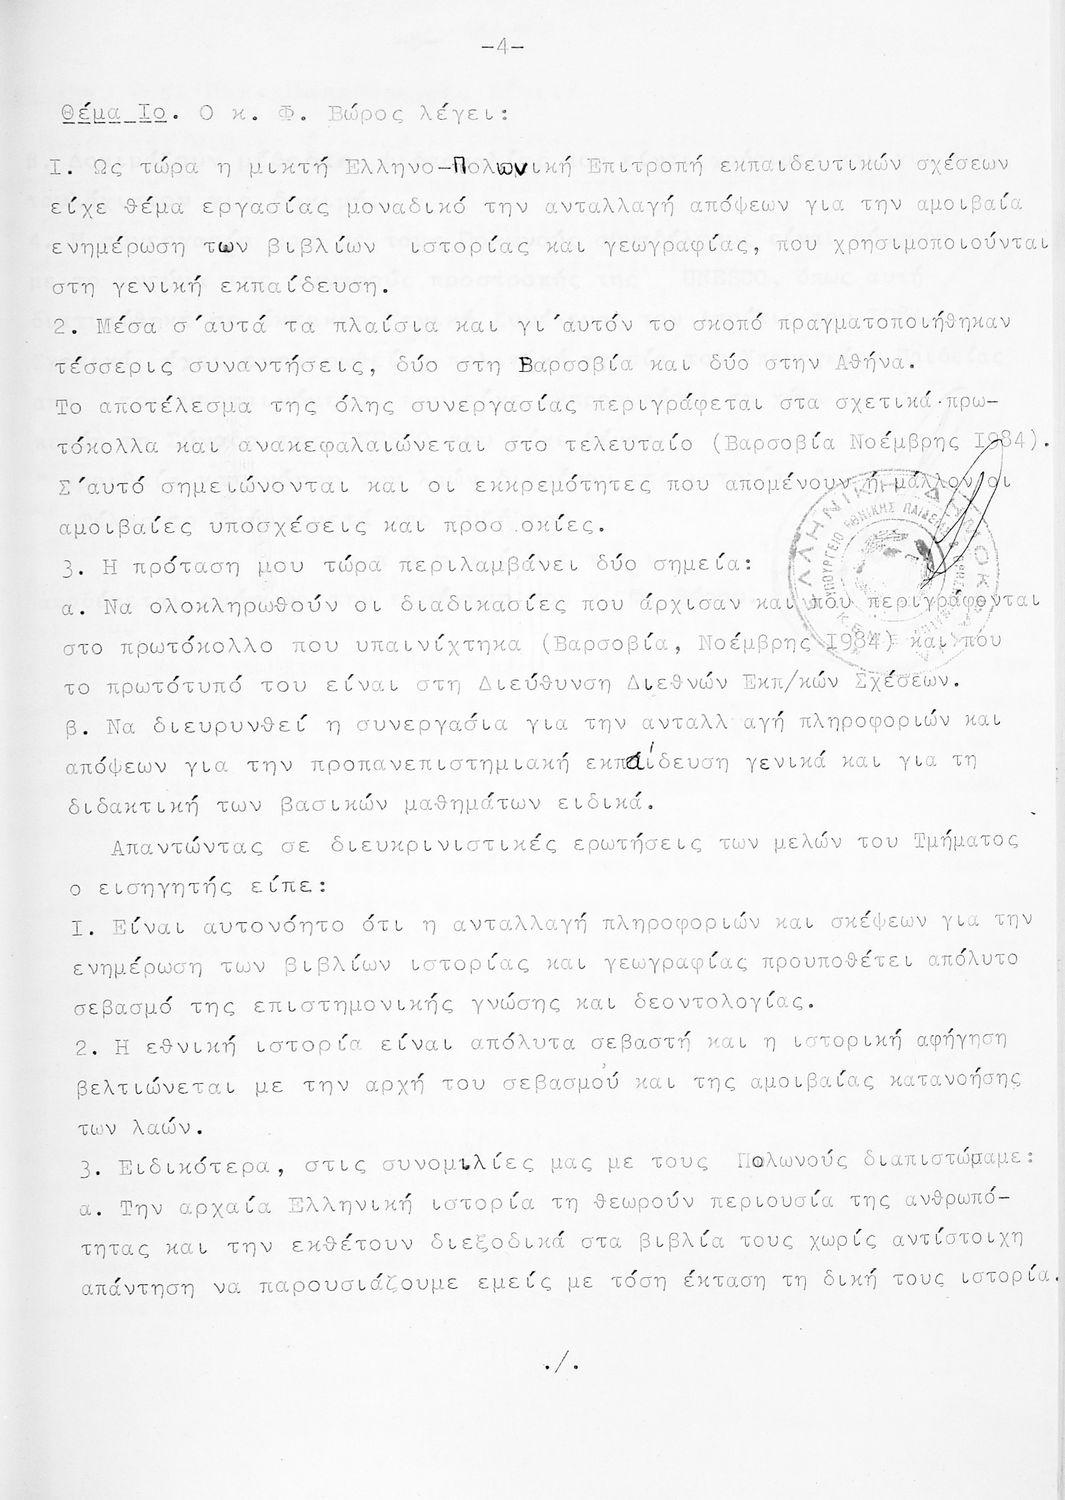 -4-
Θέμα Ιο. Ο κ. Φ. Βώρος λέγει:
Ι. Ως τώρα η μικτή Ελληνο-Πολωνική Επιτροπή εκπαιδευτικών σχέσεων
είχε θέμα εργασίας μοναδικό την ανταλλαγή απόψεων για την αμοιβαία
ενημέρωση των βιβλίων ιστορίας και γεωγραφίας, που χρησιμοποιούνται
στη γενική εκπαίδευση.
2. Μέσα σ'αυτά τα πλαίσια και γι'αυτόν το σκοπό πραγματοποιήθηκαν
τέσσερις συναντήσεις, δύο στη Βαρσοβία και δύο στην Αθήνα.
Το αποτέλεσμα της όλης συνεργασίας περιγράφεται στα σχετικά πρω-
τόκολλα και ανακεφαλαιώνεται στο τελευταίο (Βαρσοβία Νοέμβρης Ι984).
Σ'αυτό σημειώνονται και οι εκκρεμότητες που απομένουν ή μάλλον οι
αμοιβαίες υποσχέσεις και προσ οκίες.
3. Η πρόταση μου τώρα περιλαμβάνει δύο σημεία:
α. Να ολοκληρωθούν οι διαδικασίες που άρχισαν και που περιγράφονται
στο πρωτόκολλο που υπαινίχτηκα (Βαρσοβία, Νοέμβρης Ι984) και που
το πρωτότυπό του είναι στη Διεύθυνση Διεθνών Εκπ/κών Σχέσεων.
β. Να διευρυνθεί η συνεργασία για την ανταλλ αγή πληροφοριών και
απόψεων για την προπανεπιστημιακή εκπαίδευση γενικά και για τη
διδακτική των βασικών μαθημάτων ειδικά.
Απαντώντας σε διευκρινιστικές ερωτήσεις των μελών του Τμήματος
ο εισηγητής είπε:
Ι. Είναι αυτονόητο ότι η ανταλλαγή πληροφοριών και σκέψεων για την
ενημέρωση των βιβλίων ιστορίας και γεωγραφίας προυποθέτει απόλυτο
σεβασμό της επιστημονικής γνώσης και δεοντολογίας.
2. Η εθνική ιστορία είναι απόλυτα σεβαστή και η ιστορική αφήγηση
βελτιώνεται με την αρχή του σεβασμού και της αμοιβαίας κατανοήσης
των λαών.
3. Ειδικότερα, στις συνομιλίες μας με τους Πολωνούς διαπιστώσαμε:
α. Την αρχαία Ελληνική ιστορία τη θεωρούν περιουσία της ανθρωπό-
τητας και την εκθέτουν διεξοδικά στα βιβλία τους χωρίς αντίστοιχη
απάντηση να παρουσιάζουμε εμείς με τόση έκταση τη δική τους ιστορία.
./.